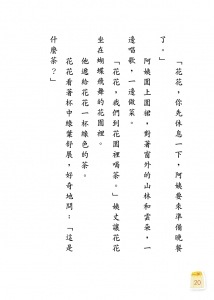 「花花，你先休息一下，阿姨要來準備晚餐
了。」
阿姨圍上圍裙，對著窗外的山林和雲朵，一
邊唱歌，一邊做菜。
「花花，我們到花園裡喝茶。」姨丈讓花花
坐在蝴蝶飛舞的花園裡。
他遞給花花一杯綠色的茶。
花花看著杯中綠葉舒展，好奇地問：「這是
什麼茶？」
20